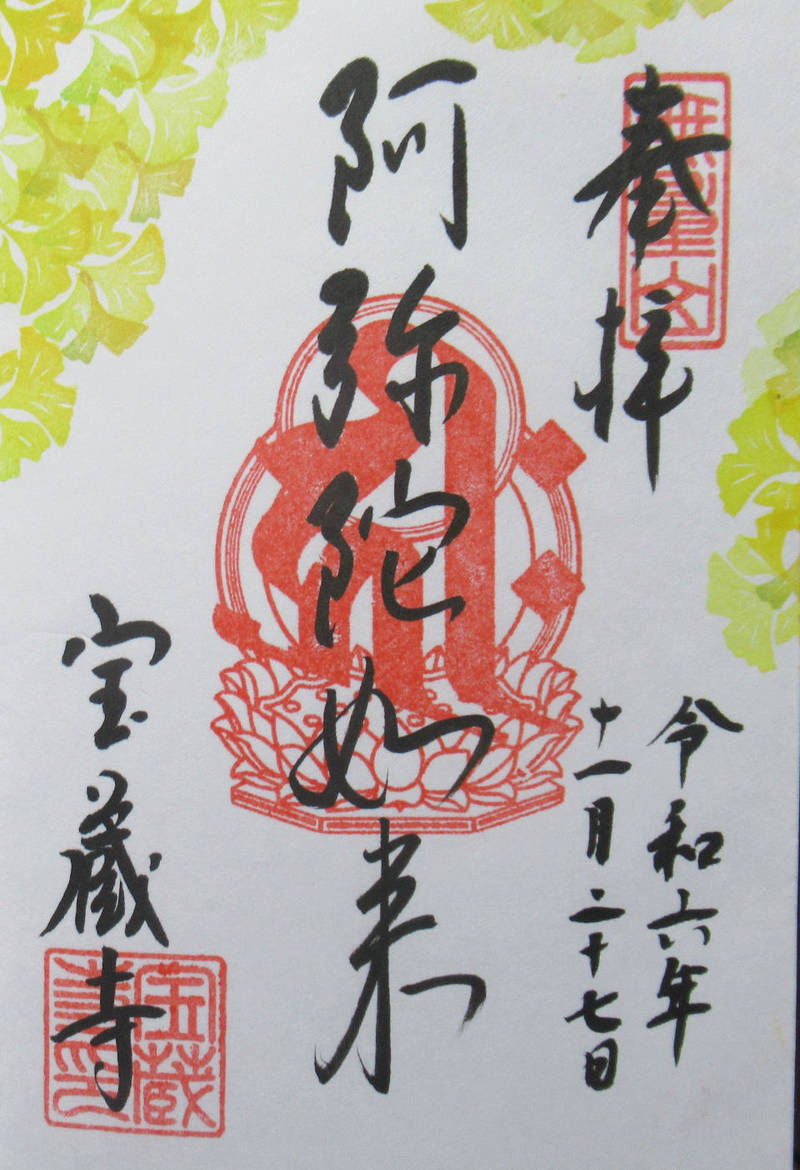 奉拝
無量山
令和六年
十一月二十七日
阿弥陀如来
宝蔵寺
宝蔵寺印